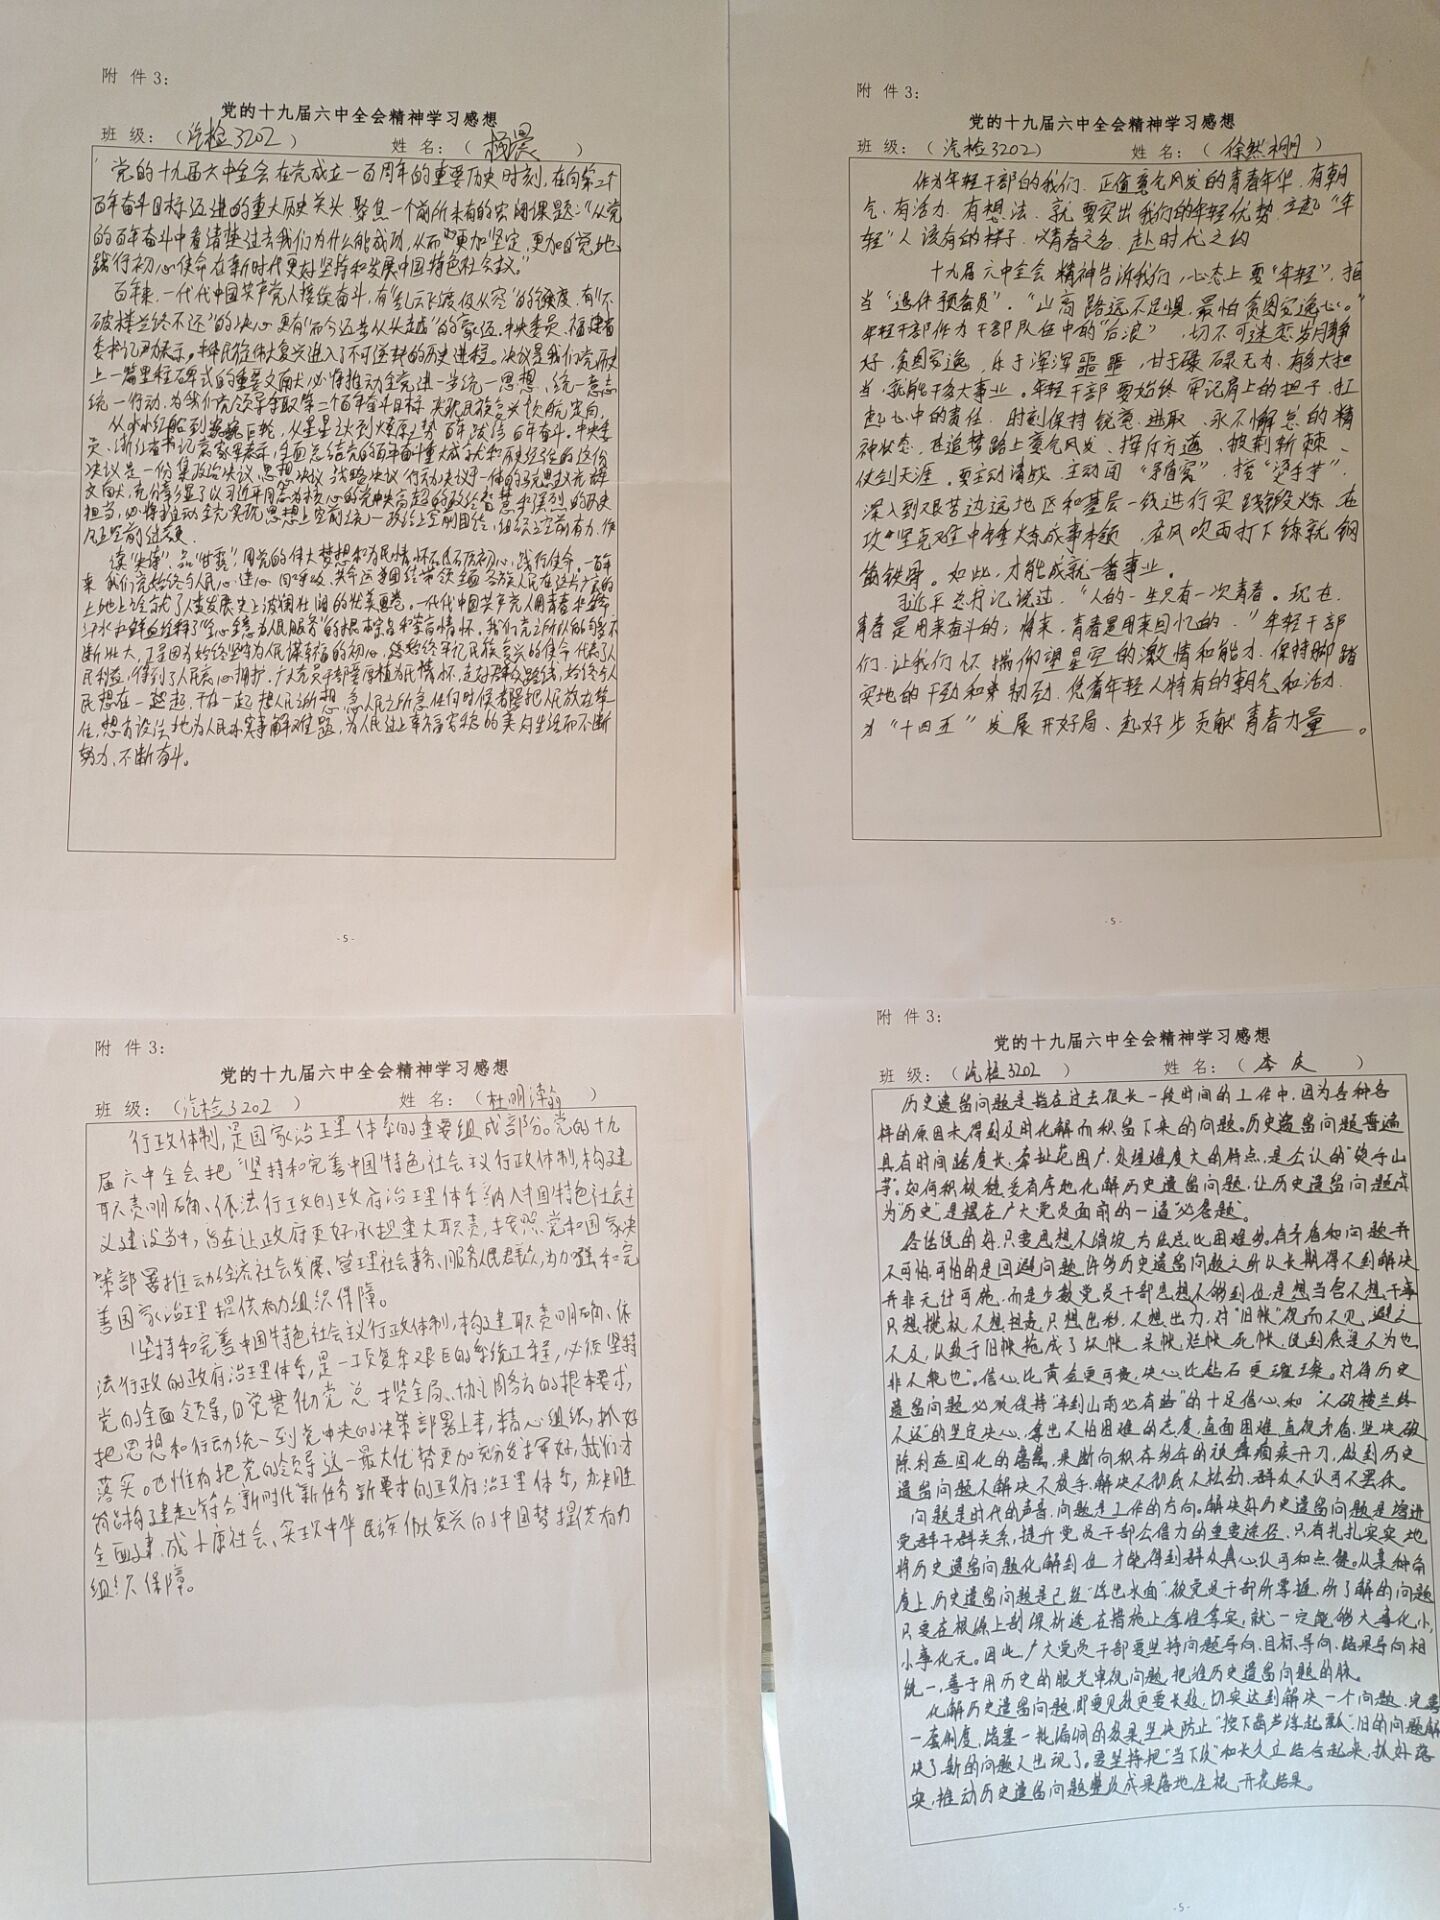 附 件 3：
党的十九届六中全会精神学习感想
班 级：（汽检3202） 姓 名：（杨晨）
党的十九届六中全会在党成立一百周年的重要历史时刻，在向第二个
百年奋斗目标迈进的重大历史关头，聚焦一个前所未有的宏阔课题："从党
的百年奋斗中看清楚过去我们为什么能成功，从而更加坚定、更加自觉地
践行初心使命在新时代更好坚持和发展中国特色社会主义。"
百年来，一代代中国共产党人接续奋斗，有"乱云飞渡仍从容"的 ，有"不
破楼兰终不还"的决心更有"而今迈步从头越"的豪迈。中央委员、福建省
委书记尹力表示。中华民族伟大复兴进入了不可逆转的历史进程。决议是我们党历史
上一篇里程碑式的重要文献，必将推动全党进一步统一思想、统一意志
统一行动，为我们党领导争取第二个百年奋斗目标，实现民族复兴领航定向。
从小小红船到巍巍巨轮，从星星之火到燎原之势，百年 百年奋斗。中央委
员、浙江省书记袁家军表示，全面总结党的百年奋斗重大成就和历史经验的这份
决议是一份集政治决议、思想决议、战略决议、行动决议于一体的马克思主义光辉
文献，充分彰显了以习近平同志为核心的党中央高超的政治智慧和强烈的历史
担当，必将推动全党实现思想上空前统一政治上空前团结，组织上空前有力，作
风上空前过硬。
读"史诗"，品"甘露"，用党的伟大梦想和为民情怀 初心，践行使命。一百年
来 我们党始终与人民心连心、同呼吸、共命运，团结带领全国各族人民在这片广袤的
土地上绘就了人类发展史上波澜壮阔的优美画卷。一代代中国共产党人用青春和
汗水和鲜血诠释了"全心全意为人民服务"的根本宗旨和崇高情怀。我们党之所以
断壮大，正是因为始终坚守为人民谋幸福的初心，始终牢记民族复兴的使命 代表了人
民利益，得到了人民衷心拥护。广大党员干部要厚植为民情怀，走好群众路线，始终与人
民想在一起、干在一起，想人民之所想，急人民之所急，任何时候都要把人民放在第
位，想方设法地为人民办实事解难题，为人民过上幸福 的美好生活而不断
努力、不断奋斗。
-5-
附 件 3：
党的十九届六中全会精神学习感想
班 级：（汽检3202） 姓 名：（徐然栩）
作为年轻干部的我们，正值意气风发的青春年华，有朝
气、有活力、有想法，就要突出我们的年轻优势，立起"年
轻"人该有的样子，以青春之名，赴时代之约
十九届六中全会精神告诉我们，心态上要"年轻"，拒
当"退休预备员"。"山高路远不足惧，最怕贪图安逸心。"
年轻干部作为干部队伍中的"后浪"，切不可迷恋岁月静
好，贪图安逸，乐于浑浑噩噩，甘于碌碌无为，有多大担
当，就能干多大事业。年轻干部要始终牢记肩上的担子，扛
起心中的责任，时刻保持锐意进取、永不懈怠的精
神状态，在追梦路上意气风发、挥斥方遒、披荆斩棘、
仗剑天涯。要主动请战，主动面"矛盾窝"，接"烫手芋"，
深入到艰苦边远地区和基层一线进行实践锻炼，在
攻坚克难中锤炼成事本领，在风吹雨打下练就钢
筋铁骨。如此，才能成就一番事业。
习近平总书记说过，"人的一生只有一次青春。现在，
青春是用来奋斗的；将来，青春是用来回忆的。"年轻干部
们，让我们怀揣仰望星空的激情和能力，保持脚踏
实地的干劲和韧劲，凭着年轻人特有的朝气和活力，
为"十四五"发展开好局、起好步贡献青春力量。
-5-
附 件 3：
党的十九届六中全会精神学习感想
班 级：（汽检3202） 姓 名：（杜明瀚）
行政体制，是国家治理体系的重要组成部分。党的十九
届六中全会把"坚持和完善中国特色社会主义行政体制，构建
职责明确、依法行政的政府治理体系"纳入中国特色社会主
义建设当中，旨在让政府更好承担重大职责，按照党和国家决
策部署推动经济社会发展、管理社会事务、服务人民群众，为加强和完
善国家治理提供有力组织保障。
坚持和完善中国特色社会主义行政体制，构建职责明确、依
法行政的政府治理体系，是一项复杂艰巨的系统工程，必须坚持
党的全面领导，自觉贯彻党总揽全局、协调各方的根本要求，
把思想和行动统一到党中央的决策部署上来，精心组织，抓好
落实。也惟有把党的领导这一最大优势更加充分发挥好，我们才
能构建起符合新时代新任务新要求的政府治理体系，为决胜
全面建成小康社会、实现中华民族伟大复兴的中国梦提供有力
组织保障。
附 件 3：
党的十九届六中全会精神学习感想
班 级：（汽检3202） 姓 名：（李庆）
历史遗留问题是指在过去很长一段时间的工作中，因为各种各
样的原因未得到及时化解而积留下来的问题。历史遗留问题普遍
具有时间跨度长、牵扯范围广、处理难度大的特点，是公认的"烫手山
芋"。如何积极稳妥有序地化解历史遗留问题，让历史遗留问题成
为"历史"，是摆在广大党员面前的一道"必答题"。
俗话说的好，只要思想不滑坡，方法总比困难多。有矛盾和问题并
不可怕，可怕的是回避问题，许多历史遗留问题之所以长期得不到解决
并非无计可施，而是少数党员干部思想不够到位，是想当官不想干事
只想揽权，不想担责，只想出彩，不想出力，对"旧帐"视而不见，避之
不及，以致于旧帐拖成了坏帐、呆帐、烂帐、死帐，说到底"是不为也
非不能也"。信心比黄金更可贵，决心比钻石更璀璨。对待历史
遗留问题必须保持"车到山前必有路"的十足信心和"不破楼兰终
不还"的坚定决心，拿出不怕困难的态度，直面困难，直视矛盾，坚决破
除利益固化的藩篱，果断向积存多年的顽瘴痼疾开刀，做到历史
遗留问题不解决不放手，解决不彻底不松劲，群众不认可不罢休。
问题是时代的声音，问题是工作的方向。解决好历史遗留问题是增进
党群干群关系，提升党员干部公信力的重要途径，只有扎扎实实地
将历史遗留问题化解到位，才能得到群众真心认可和点赞。从某种角
度上，历史遗留问题是已经"浮出水面"，被党员干部所掌握，所了解的问题
只要在根源上剖深析透，在措施上拿准拿实，就一定能够大事化小，
小事化无。因此，广大党员干部要坚持问题导向、目标导向、结果导向相
统一，善于用历史的眼光审视问题，把准历史遗留问题的脉。
化解历史遗留问题，即要见效更要长效，切实达到解决一个问题，完善
一套制度，堵塞一批漏洞的效果，坚决防止"按下葫芦浮起瓢"，旧的问题解
决了，新的问题又出现了。要坚持把"当下改"和长久立结合起来，抓好落
实，推动历史遗留问题整改成果落地、生根、开花结果。
-5-